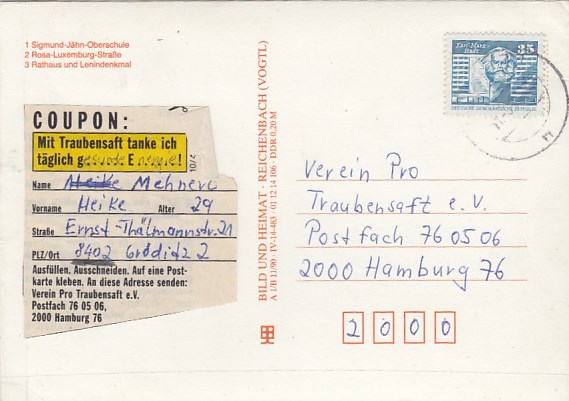 1 Sigmund-Jähn-Oberschule
2 Rosa-Luxemburg-Straße
3 Rathaus und Lenindenkmal
Karl-Marx-Stadt
35
DEUTSCHE DEMOKRATISCHE REPUBLIK
COUPON:
Mit Traubensaft tanke ich
täglich gesunde Energie!
10/2
Name Heike Mehnert
Vorname Heike Alter 29
Straße Ernst-Thälmannstr. 21
PLZ/Ort 8402 Gröditz 2
Ausfüllen. Ausschneiden. Auf eine Post-
karte kleben. An diese Adresse senden:
Verein Pro Traubensaft e.V.
Postfach 76 05 06,
2000 Hamburg 76
BILD UND HEIMAT · REICHENBACH (VOGTL)
A 1/B 11/90 · IV-14-483 · 01 12 14 106 · DDR 0,20 M
Verein Pro
Traubensaft e.V.
Postfach 76 05 06
2000 Hamburg 76
2 0 0 0